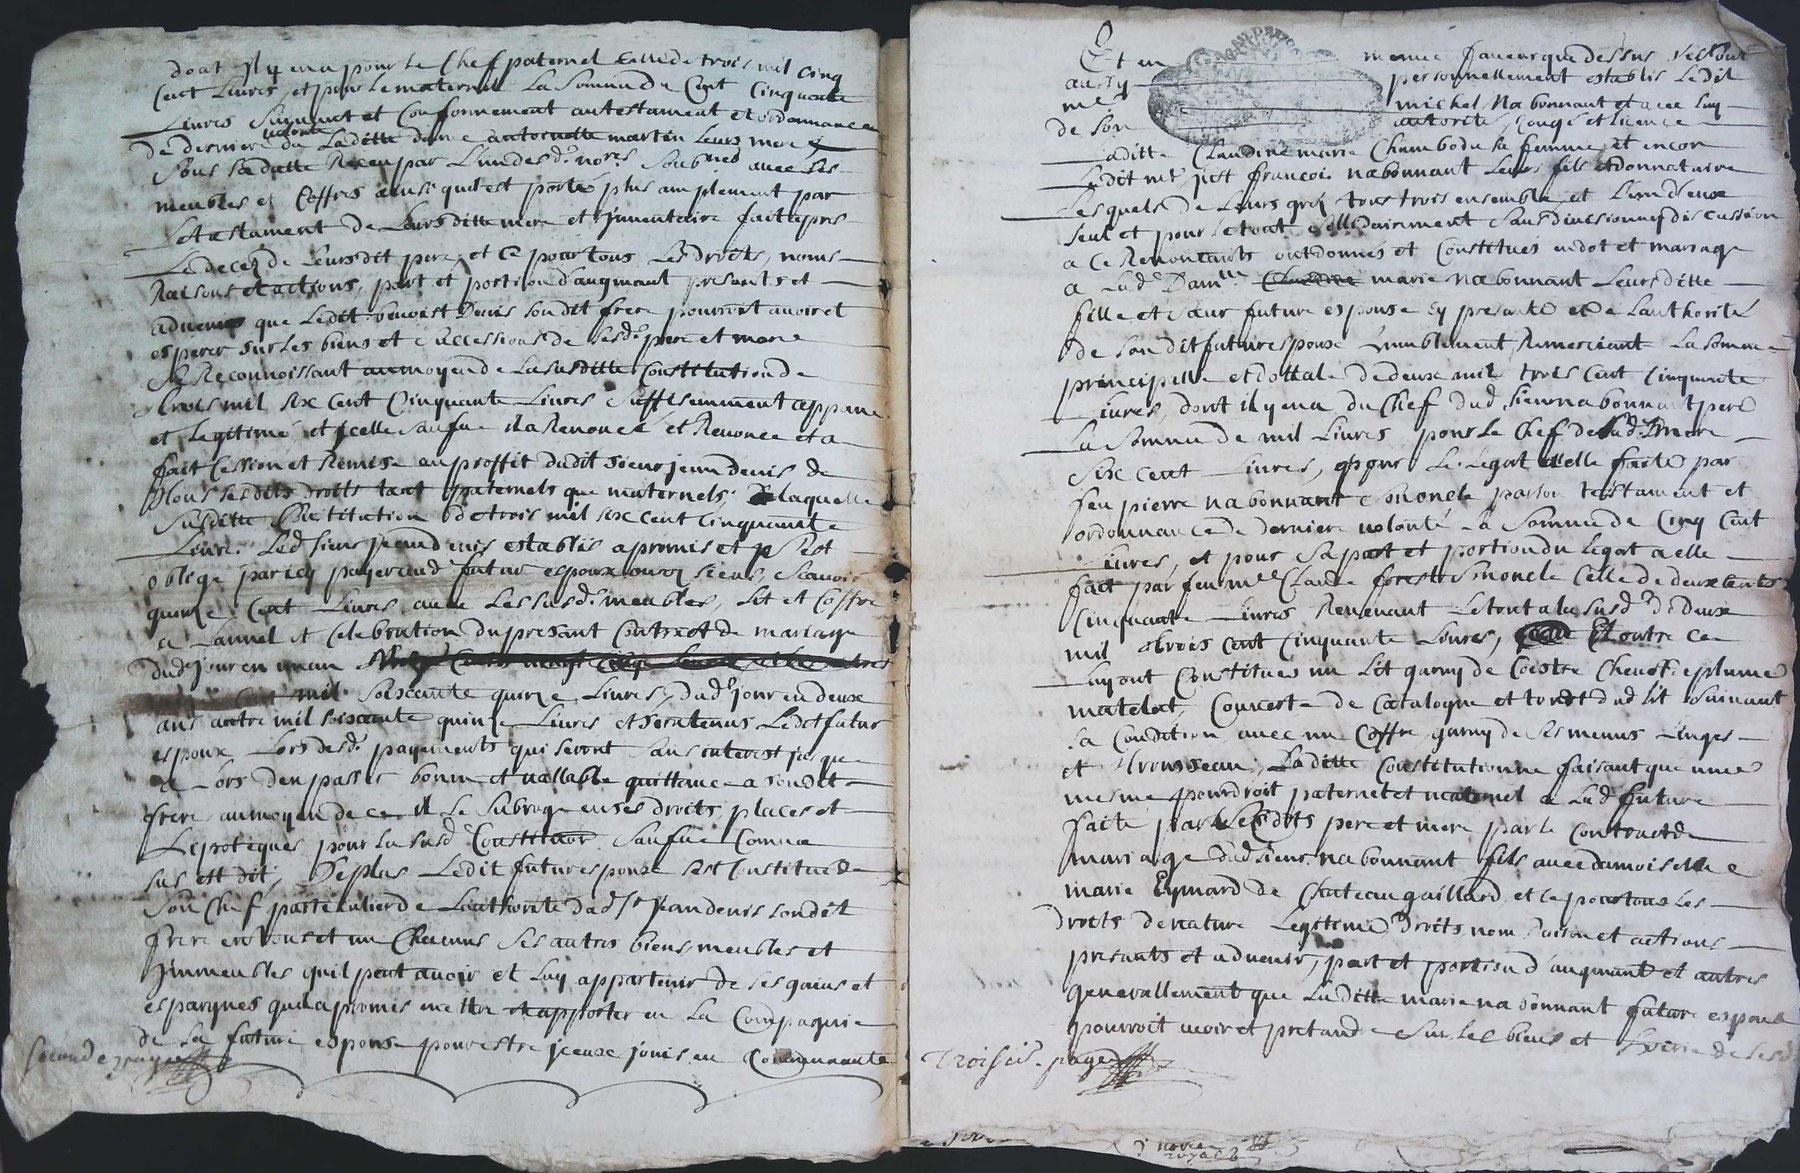 dont il y en a pour le chef paternel celle de trois mil cinq
cent livres, et pour le maternel la somme de cent cinquante
livres suivant et conformement au testament et ordonnance
de derniere volonté de laditte dame antoinette martin leurs mere
sous sa datte receu par l'un des d. no.res soubnés avec ses
meubles et coffres ainsi quil est porté plus amplement par
le testament de leurs ditte mere et jnventaire fait apres
le decez de leurs dit pere, et ce pour tous les droits, noms
raisons et actions, part et portion d'augment presants et
advenir que ledit benoist Denis son dit frere pourroit avoir et
esperer sur les biens et successions de sesd. pere et mere
se reconnoissant au moyen de la susditte constitution de
trois mil six cent cinquante livres suffisemment appane
et legitimé et jcelle saufue il a renoncé et renonce et a
fait cession et remise au proffit dudit sieur jean denis de
tous sesdits droits tant paternels que maternels; laquelle
susditte constitution de trois mil six cent cinquante
livres led. sieur jean denis establis a promis et s'est
obligé par icy payer aud. futur espoux ou ez siens, scavoir
quinze cent livres avec les susd. meubles, lit et coffre
a l'annel et celebration du presant contract de mariage
dud. jour en un an
mil soixante quinze livres, dud. jour en deux
ans autre mil soixante quinze livres et sera tenus ledit futur
espoux lors desd. payements qui seront sans interest jusque
a lors d'en passer bonne et vallable quittance a son dit
frere, au moyen de ce il le subroge en ses droits, places et
hipoteques pour la susd. constitution saufue comme
sus est dit, De plus ledit futur espoux s'est constitué de
son chef particulier de l'authorité dud. sr jean denis son dit
frere en tous et un chacuns ses autres biens meubles et
jmmeubles quil peut avoir et luy appartenir de ses gains et
espargnes quil a promis mettre et apporter en la compagnie
de la future espouse pour estre jceux jouis en communauté
seconde page
Et en mesme faveur que dessus se sont
aussy personnellement establis ledit
mre michel Nabonnant et avec luy
de son autorité, congé et licence
laditte Claudine marie Chambodu sa femme et encor
ledit mre jcst françois nabonnant leurs fils et donnataire
lesquels de leurs grez tous trois ensemble et l'un d'eux
seul et pour le tout solidairement sans division ny discussion
a ce renoncants ont donnés et constitués en dot et mariage
a lad. Damlle marie nabonnant leurs ditte
fille et sœur future espouse cy presante et de l'authorité
de son dit futur espoux humblement remerciant la somme
principelle et dottale de deux mil trois cent cinquante
livres, dont il y en a du chef dud. sieur nabonnant pere
la somme de mil livres pour le chef de lad. mere
six cent livres, et pour le legat a elle faite par
feu pierre nabonnant son oncle par son testament et
ordonnance de derniere volonté la somme de cinq cent
livres, et pour sa part et portion du legat a elle
fait par feu mre Claude forest son oncle celle de deux cents
cinquante livres revenant le tout a la susd. de deux
mil trois cent cinquante livres, Et outre ce
luy ont constitués un lit garny de coestre chevet plume
matelat, couverte de catalogne et tour dud. lit suivant
sa condition avec un coffre garny de ses menus linges
et trousseau, laditte constitution ne faisant que une
mesme pour droit paternel et maternel a lad. future
faite par lesdits pere et mere par le contract de
mariage dud. sieur nabonnant fils avec damoiselle
marie Eymard de Chateaugaillard, et ce pour tous les
droits de nature legitime droits, nom, raison et actions
presants et advenir, part et portion d'augment et autres
generallement que laditte marie nabonnant future espouse
pourroit avoir et pretandre sur les biens et hoirie de sesd.
Troisie. page